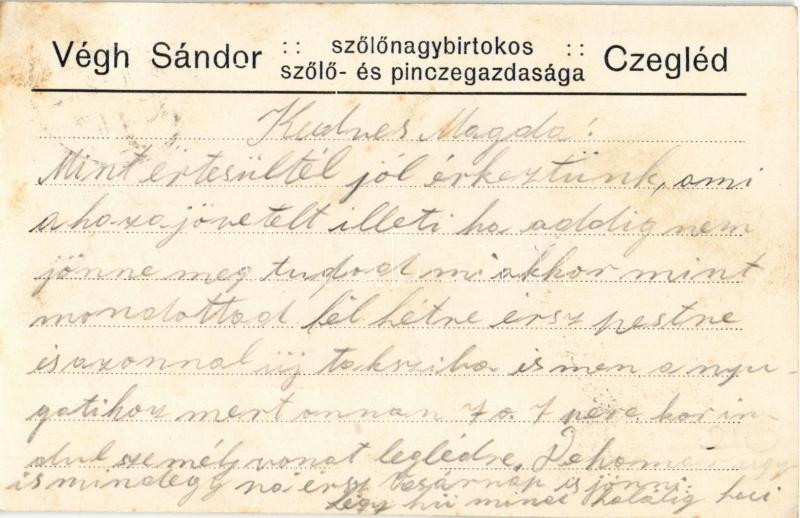 Végh Sándor :: szőlőnagybirtokos :: Czegléd
szőlő- és pinczegazdasága
Kedves Magda!
Mint értesültél jól érkeztünk, ami
a hazajövetelt illeti ha addig nem
jönne meg tudod mi akkor mint
mondottad fél hétre érsz pestre
és azonnal ülj taksziba és men a nyu-
gatihoz mert onnan 7 o. 7 perc kor in-
dul személyvonat Ceglédre. De ha
is mindegy ha érsz vasárnap is jönni
légy hű mind halálig